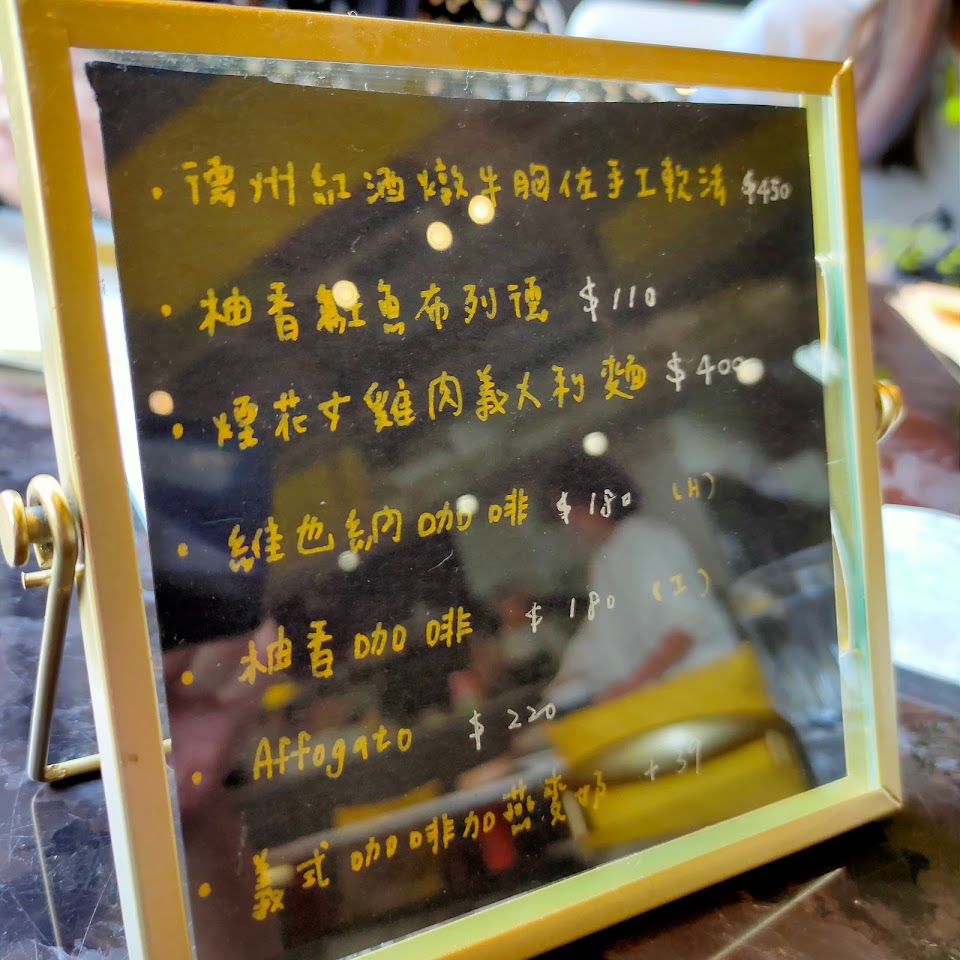 ・德州紅酒燉牛胸佐手工軟法 $450
・柚香魟魚布列德 $110
・煙花女雞肉義大利麵 $400
・維也納咖啡 $180 (H)
・柚香咖啡 $180 (I)
・Affogato $220
・義式咖啡加燕麥奶 +39